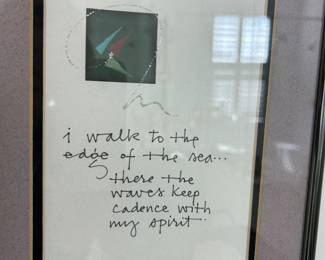 i walk to the
edge of the sea...
there the
waves keep
cadence with
my spirit